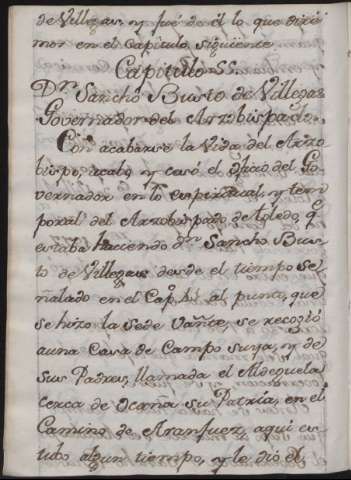 de Villegas, y fué de él lo que dixi
mos en el Capitulo siguiente
Capitulo SS.
Dn. Sancho Busto de Villegas
Governador del Arzobispado.
Con acabarse la Vida del Arzo
bispo, acabó y cesó el Oficio del Go
vernador en lo espiritual, y tem
poral del Arzobispado de toledo, q
estaba haciendo dn. Sancho Bus
to de Villegas desde el tiempo se
ñalado en el Cap. al punto, que
se hizo la Sede Vacante, se recogió
auna Casa de Campo suya, y de
sus Padres, llamada el Aldeguela
cerca de Ocaña su Patria, en el
Camino de Aranjuez, aqui es
tubo algun tiempo, y le dió el